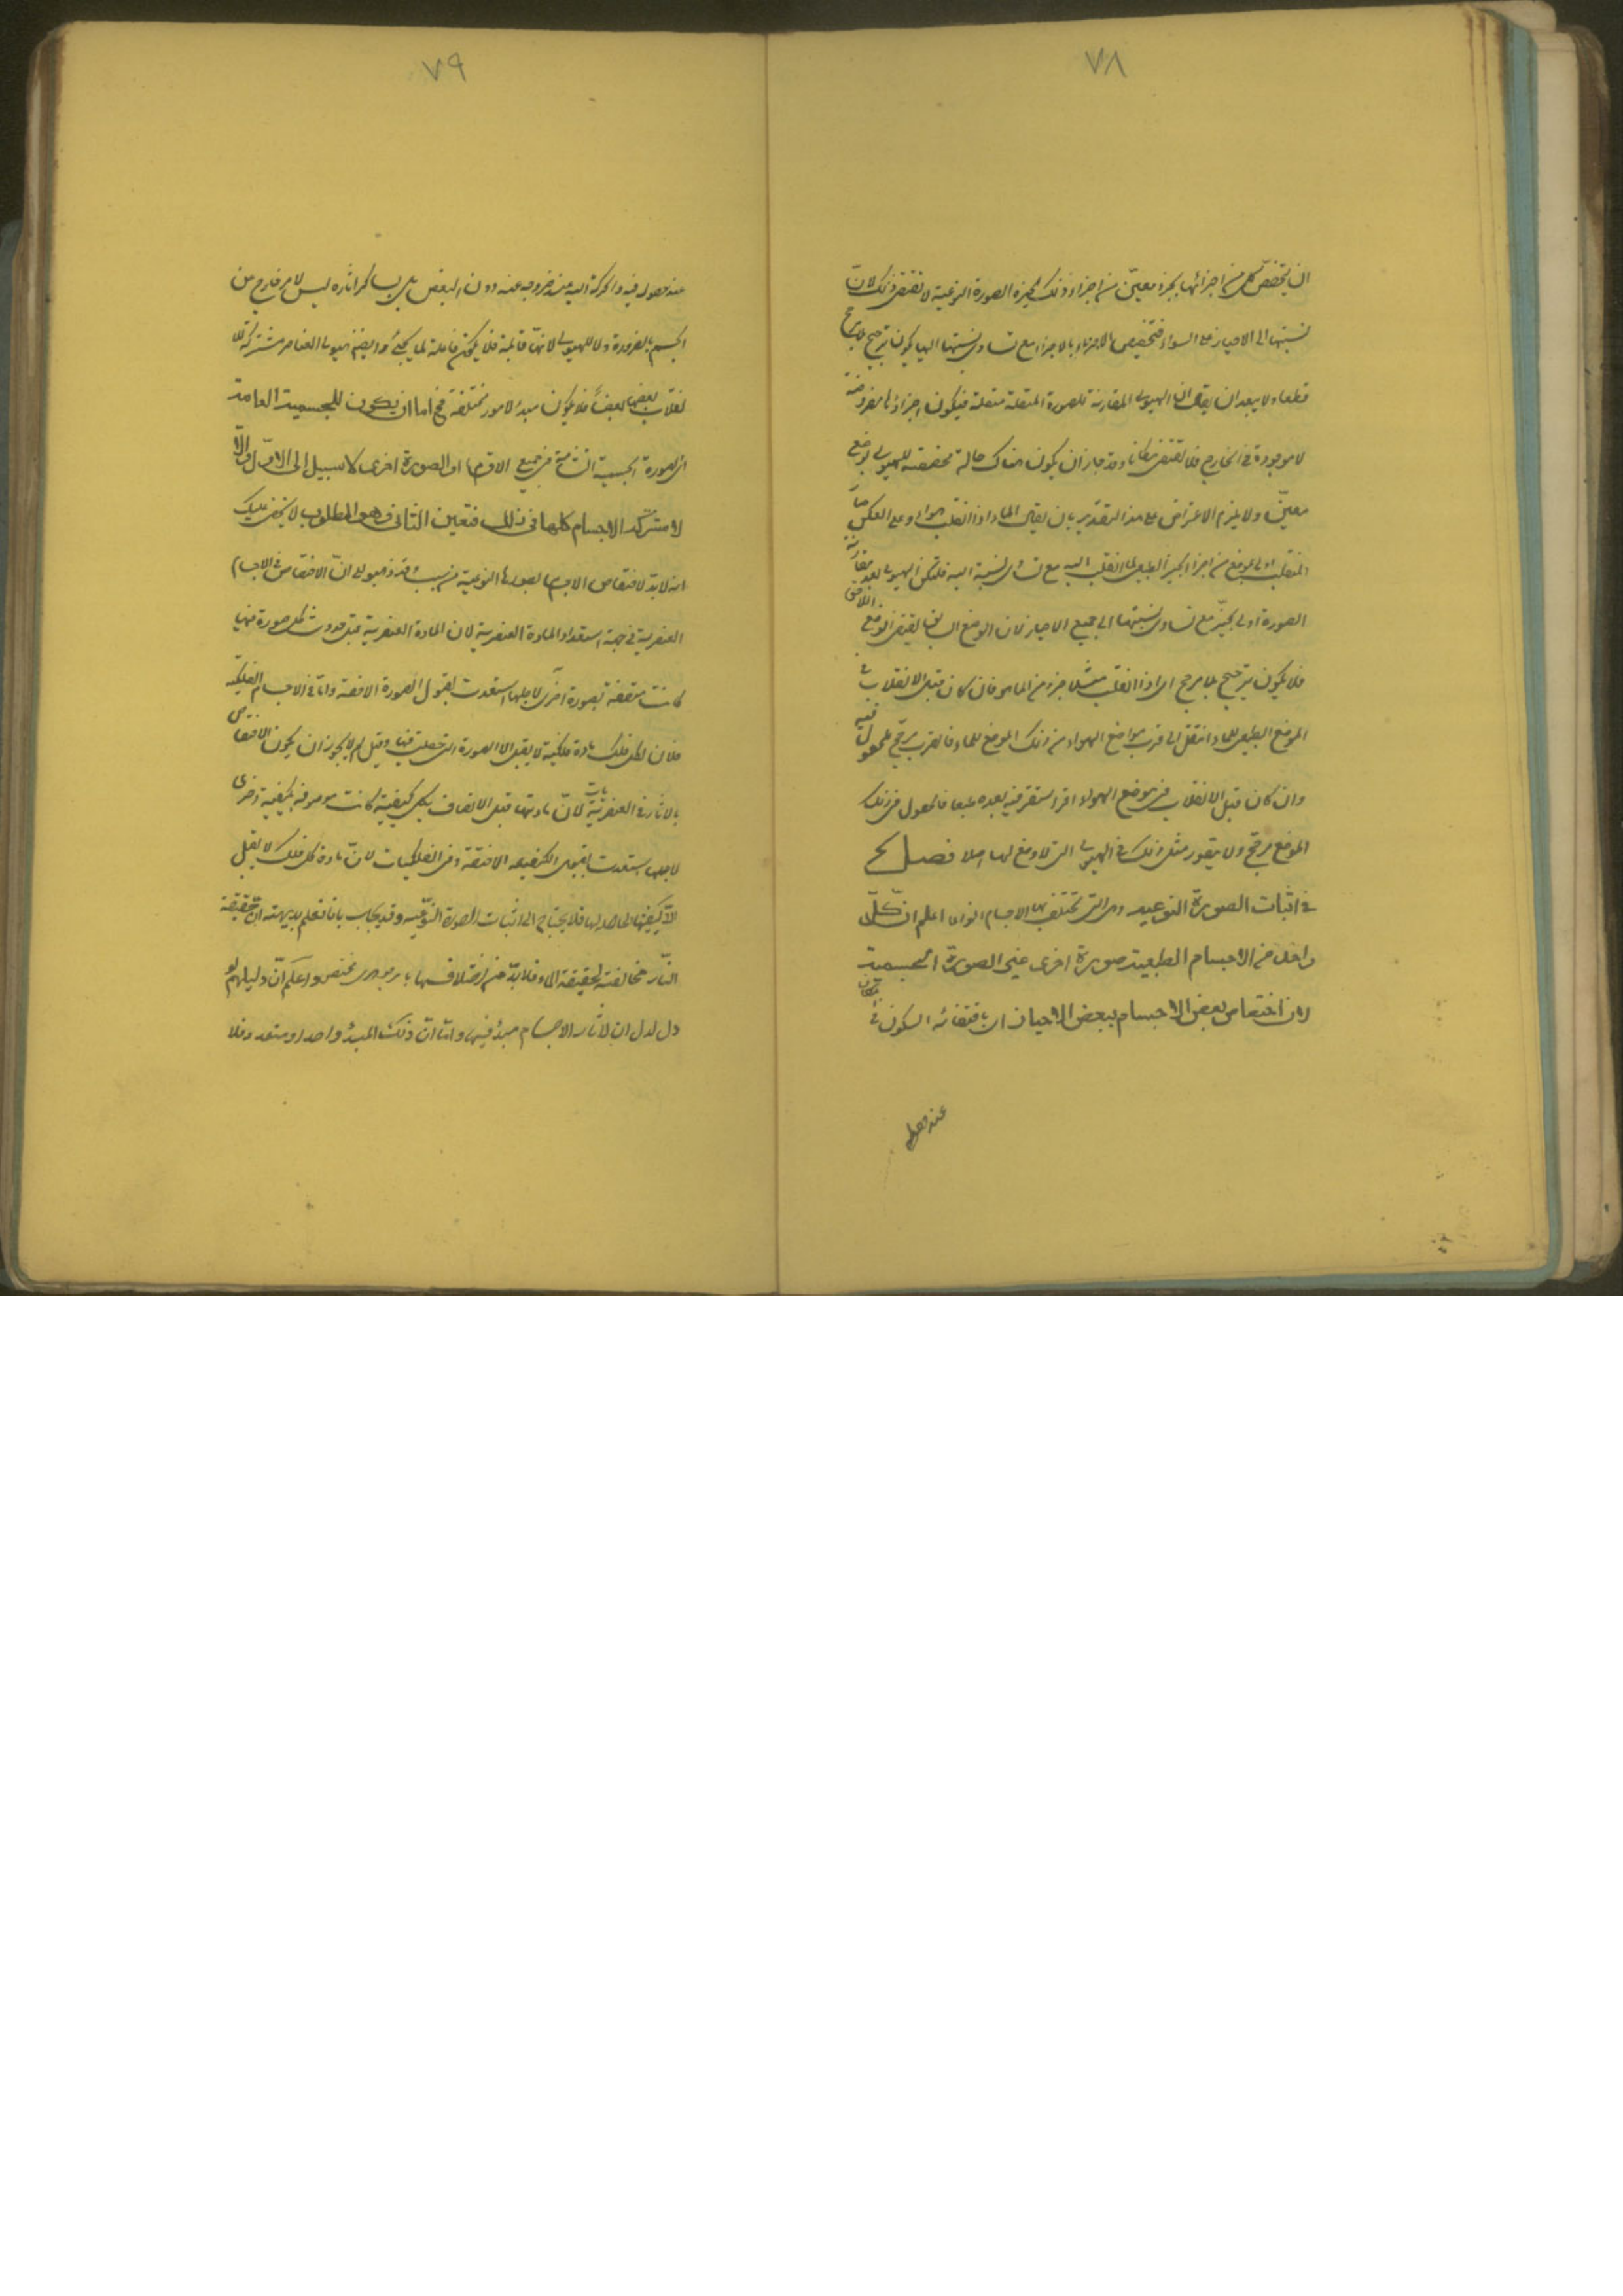 ٧٨
ان يتخصّص كل من اجزائها بجزء معيّن من اجزاء ذلك الحيّز والصورة النوعية لا تقتضى ذلك لانّ
نسبتها الى الاحياز على السواء فتخصيص الاجزاء بالاجزاء مع تساوى نسبتها اليها يكون ترجيح بلا مرجح
قطعا ولا يبعد ان يقال ان الهيولى المقارنة للصورة المتصلة متصلة فيكون اجزاؤها مفروضة
لا موجودة فى الخارج فلا تقتضى مكانا وقد جاز ان يكون هناك حالة مخصصة للهيولى بوضع
معيّن ولا يلزم الاعتراض على هذا التقدير بان يقال الماء اذا انقلب هواء وعلى العكس صار
المنقلب اولى بموضع من اجزاء الحيز الطبيعى لما انقلب اليه مع تساوى نسبته اليه فلتكن الهيولى بعد مقارنة
الصورة اولى بحيّز مع تساوى نسبتها الى جميع الاحياز لان الوضع السابق يقتضى الوضع اللاحق
فلا يكون ترجيح بلا مرجح اى اذا انقلب مثلا جزء من الماء هواء فان كان قبل الانقلاب فى
الموضع الطبيعى للماء انتقل الى اقرب مواضع الهواء من ذلك الموضع للماء فالقرب مرجح للحصول فيه
وان كان قبل الانقلاب فى موضع الهواء قسرا استقر فيه بعده طبعا فالحصول فى ذلك
الموضع مرجح ولا يتصور مثل ذلك فى الهيولى التى لا وضع لها اصلا فصل
فى اثبات الصورة النوعية وهى التى تختلف بها الاجسام انواعا اعلم انّ لكلّ
واحد من الاجسام الطبيعية صورة اخرى غير الصورة الجسمية
لان اختصاص بعض الاجسام ببعض الاحياز اى باقتضائه السكون فى مكان
عند حصوله
٧٩
عند حصوله فيه والحركة اليه عند خروجه عنه دون البعض بل بسائر اثاره ليس لامر خارج عن
الجسم بالضرورة ولا للهيولى لانها قابلة فلا يكون فاعلة لما يجئ وايضا هيولى العناصر مشتركة
لانقلاب بعضها بعضا فلا يكون مبدأ لامور مختلفة فح اما ان يكون للجسمية العامة
اى للصورة الجسمية المتشابهة فى جميع الاقسام او لصورة اخرى لا سبيل الى الاوّل والّا
لاشترك الاجسام كلها فى ذلك فتعين الثانى وهو المطلوب لا يخفى عليك
انه لا بد لاختصاص الاجسام بصورها النوعية من سبب فقد ذهبوا الى انّ الاختصاص فى الاجسام
العنصرية فى جهة استعداد المادة العنصرية لان المادة العنصرية قبل حدوث كل صورة فيها
كانت متصفة بصورة اخرى لاجلها استعدت لقبول الصورة اللاحقة واما فى الاجسام الفلكية
فلان لكل فلك مادة فلكية لا يقبل الا الصورة التى حصلت فيها وقيل لم لا يجوز ان يكون الاختصاص
بالاثار فى العنصريات لانّ مادتها قبل الاتصاف بكل كيفية كانت موصوفة بكيفية اخرى
لاجلها استعدت لقبول الكيفية اللاحقة وفى الفلكيات لانّ مادة كل فلك لا يقبل
الّا كيفيتها الحاصلة لها فلا يحتاج الى اثبات الصورة النوعية وقد يجاب بانا نعلم بديهة انّ حقيقة
النّار مخالفة لحقيقة الماء فلا بدّ من اختلافهما بامر جوهرى مختص واعلم انّ دليلهم لو
دل لدل ان لاثار الاجسام مبدأ فيها واما انّ ذلك المبدأ واحد او متعدد فلا